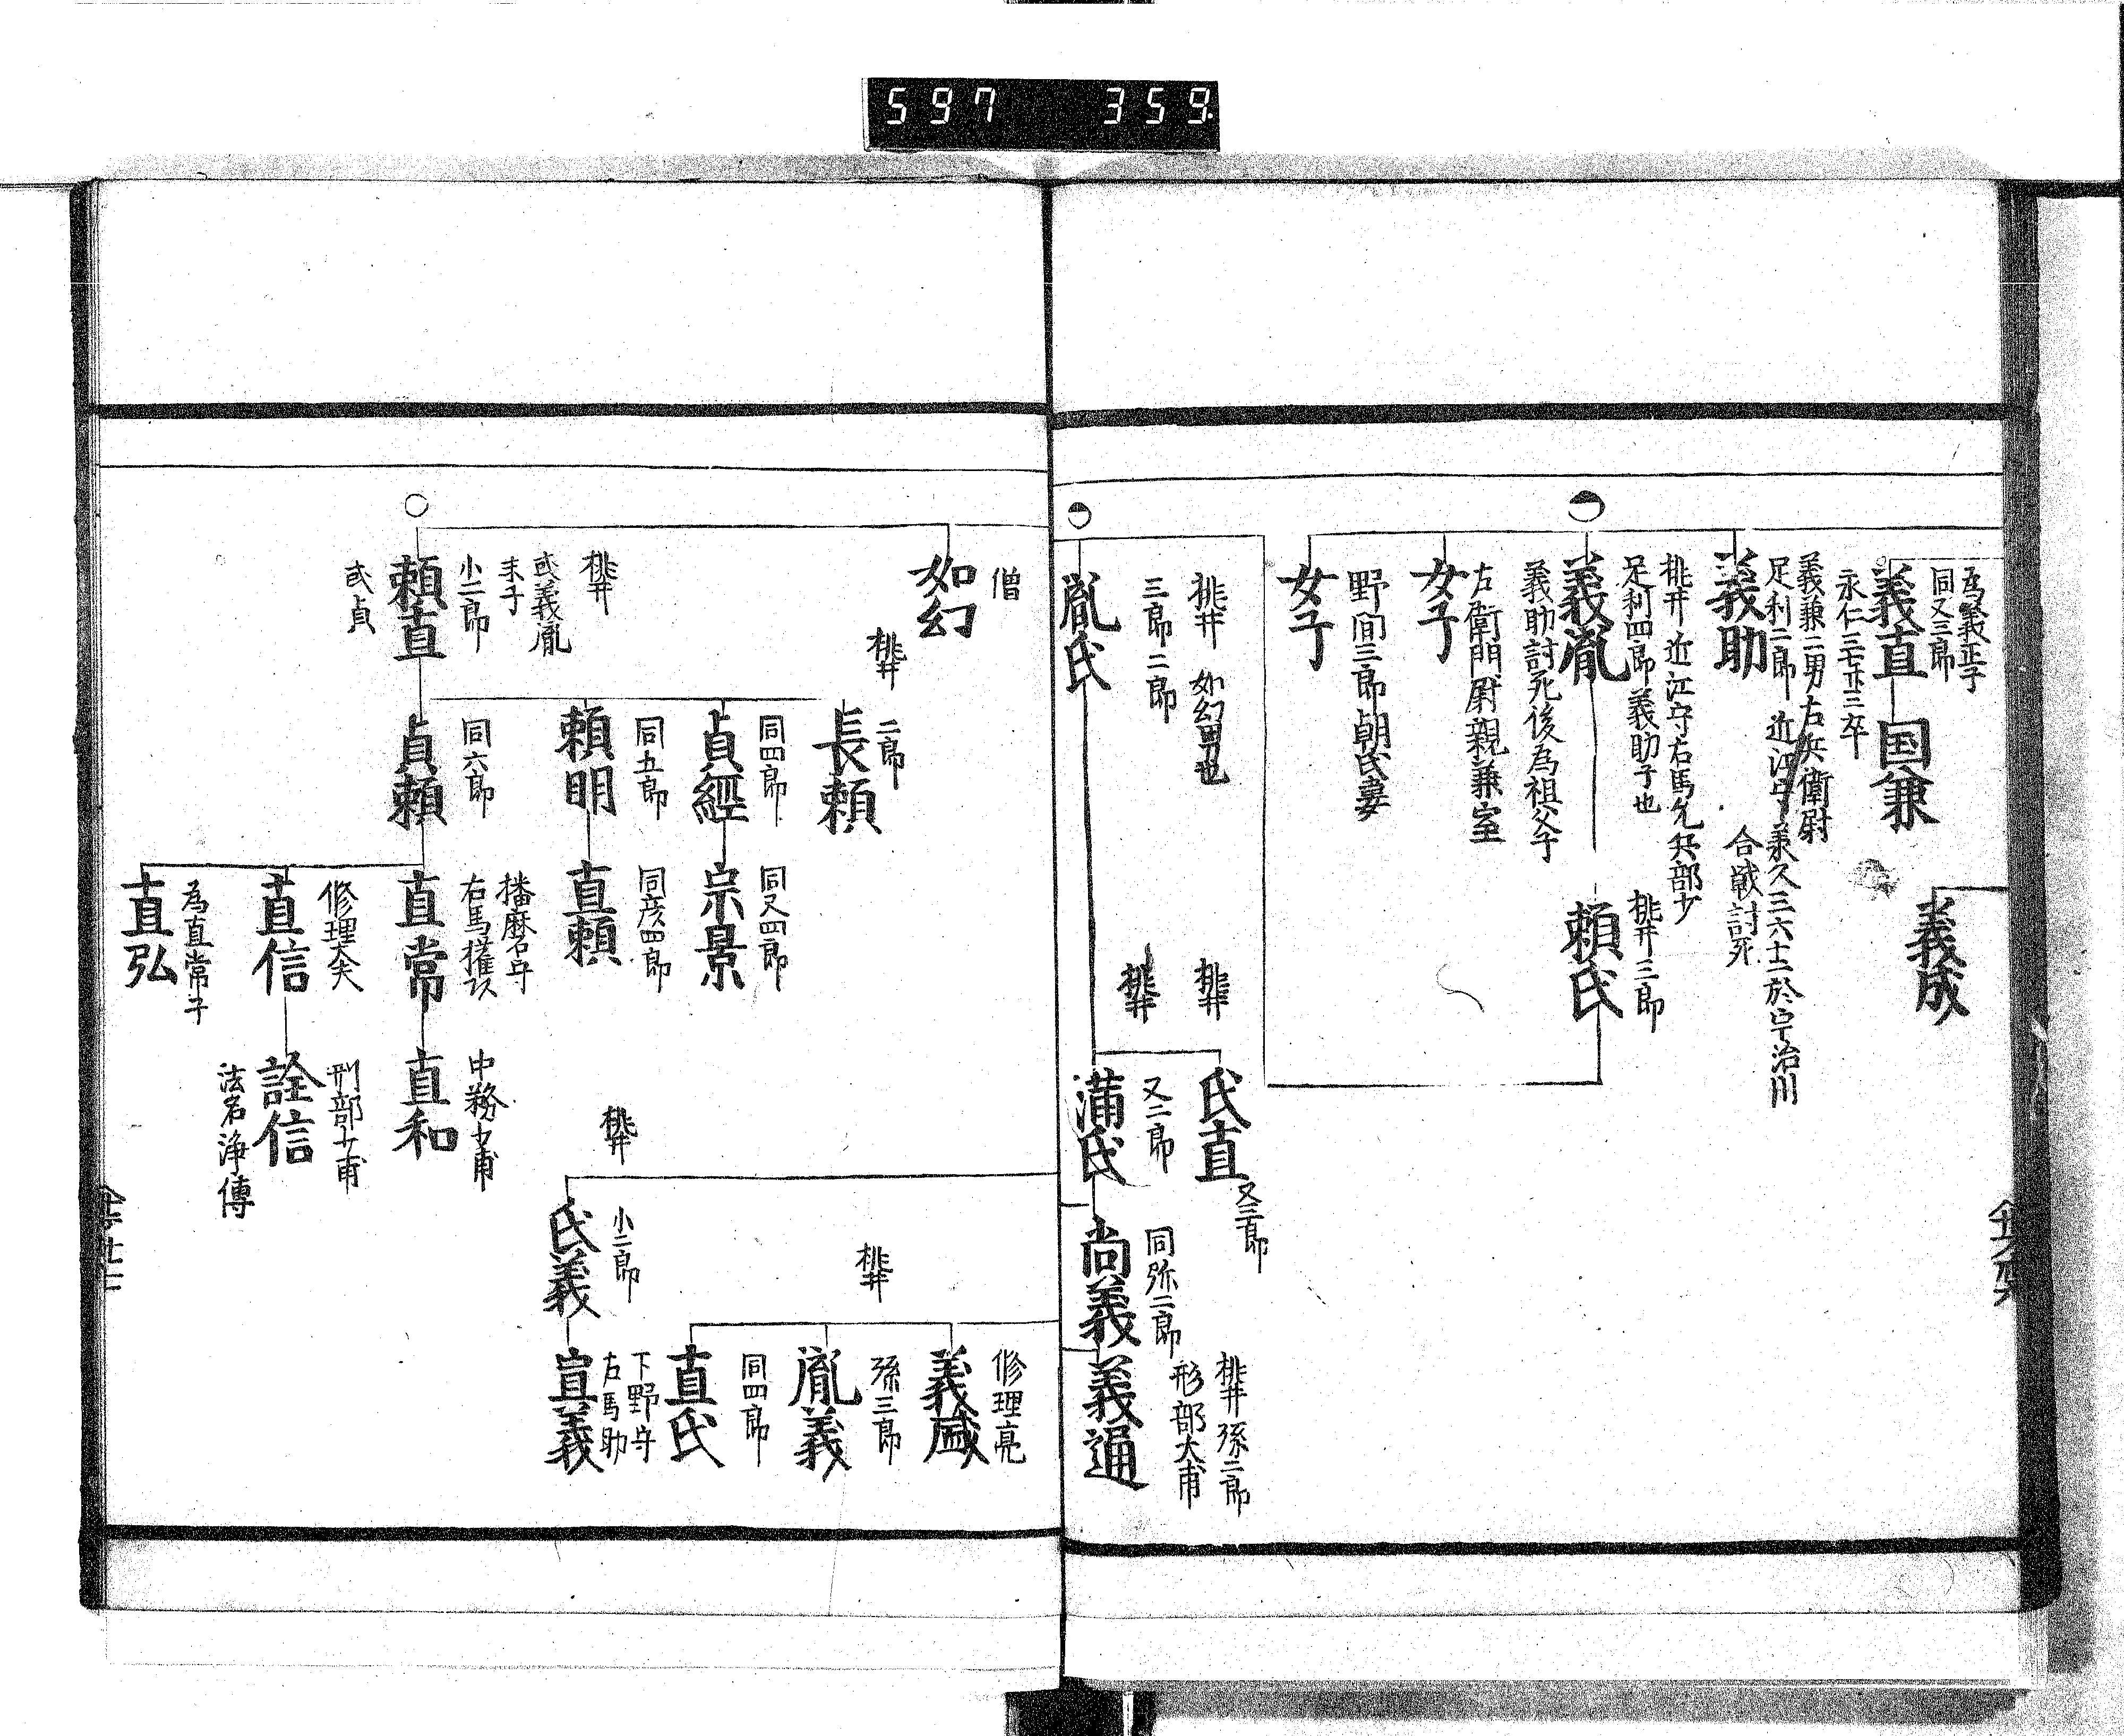 597 359
為義正子
同又三郎
義直
永仁三七廿三卒
国兼
義成
義兼二男 左兵衛尉
足利二郎 近江守 承久三六十二於宇治川
合戦討死
義助
桃井 近江守 右馬允 兵部少
足利四郎 義助子也
義胤
義助討死後為祖父子
桃井三郎
頼氏
左衛門尉親兼室
女子
野間三郎朝氏妻
女子
桃井 如幻男也
三郎二郎
胤氏
桃井
氏直
又三郎
桃井
又二郎
満氏
同弥二郎
尚義
桃井孫二郎
形部大甫
義通
僧
如幻
桃井
二郎
長頼
同四郎
貞經
同又四郎
宗景
同五郎
頼明
同彦四郎
直頼
桃井
或義胤
末子
小二郎
頼直
或貞
同六郎
貞頼
播磨守
右馬権頭
直常
中務少甫
直和
修理大夫
直信
刑部少甫
詮信
法名浄傳
為直常子
直弘
桃井
修理亮
義盛
孫三郎
胤義
同四郎
直氏
桃井
小二郎
氏義
下野守
右馬助
宣義